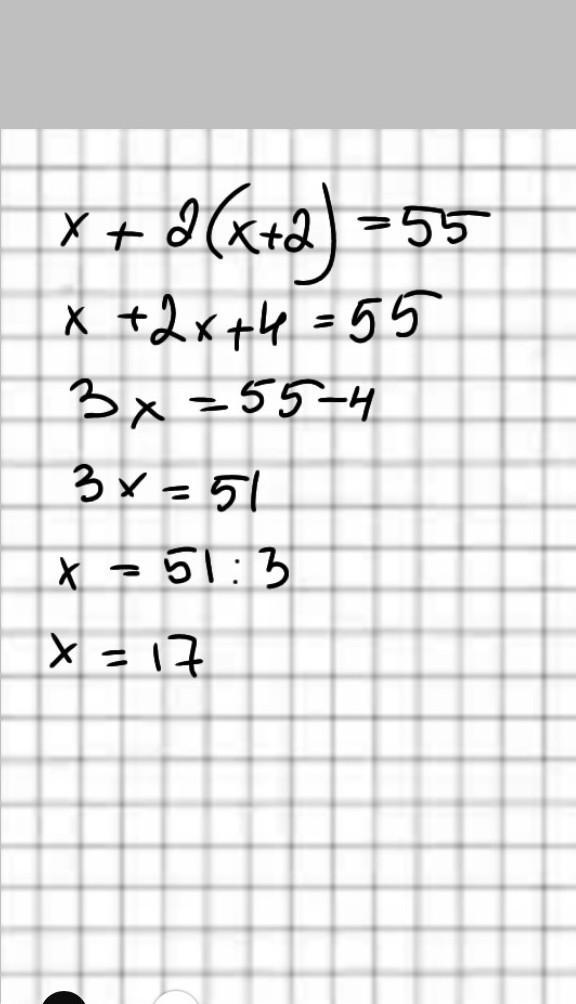 x + 2(x+2) = 55
x + 2x + 4 = 55
3x = 55 - 4
3x = 51
x = 51 : 3
x = 17